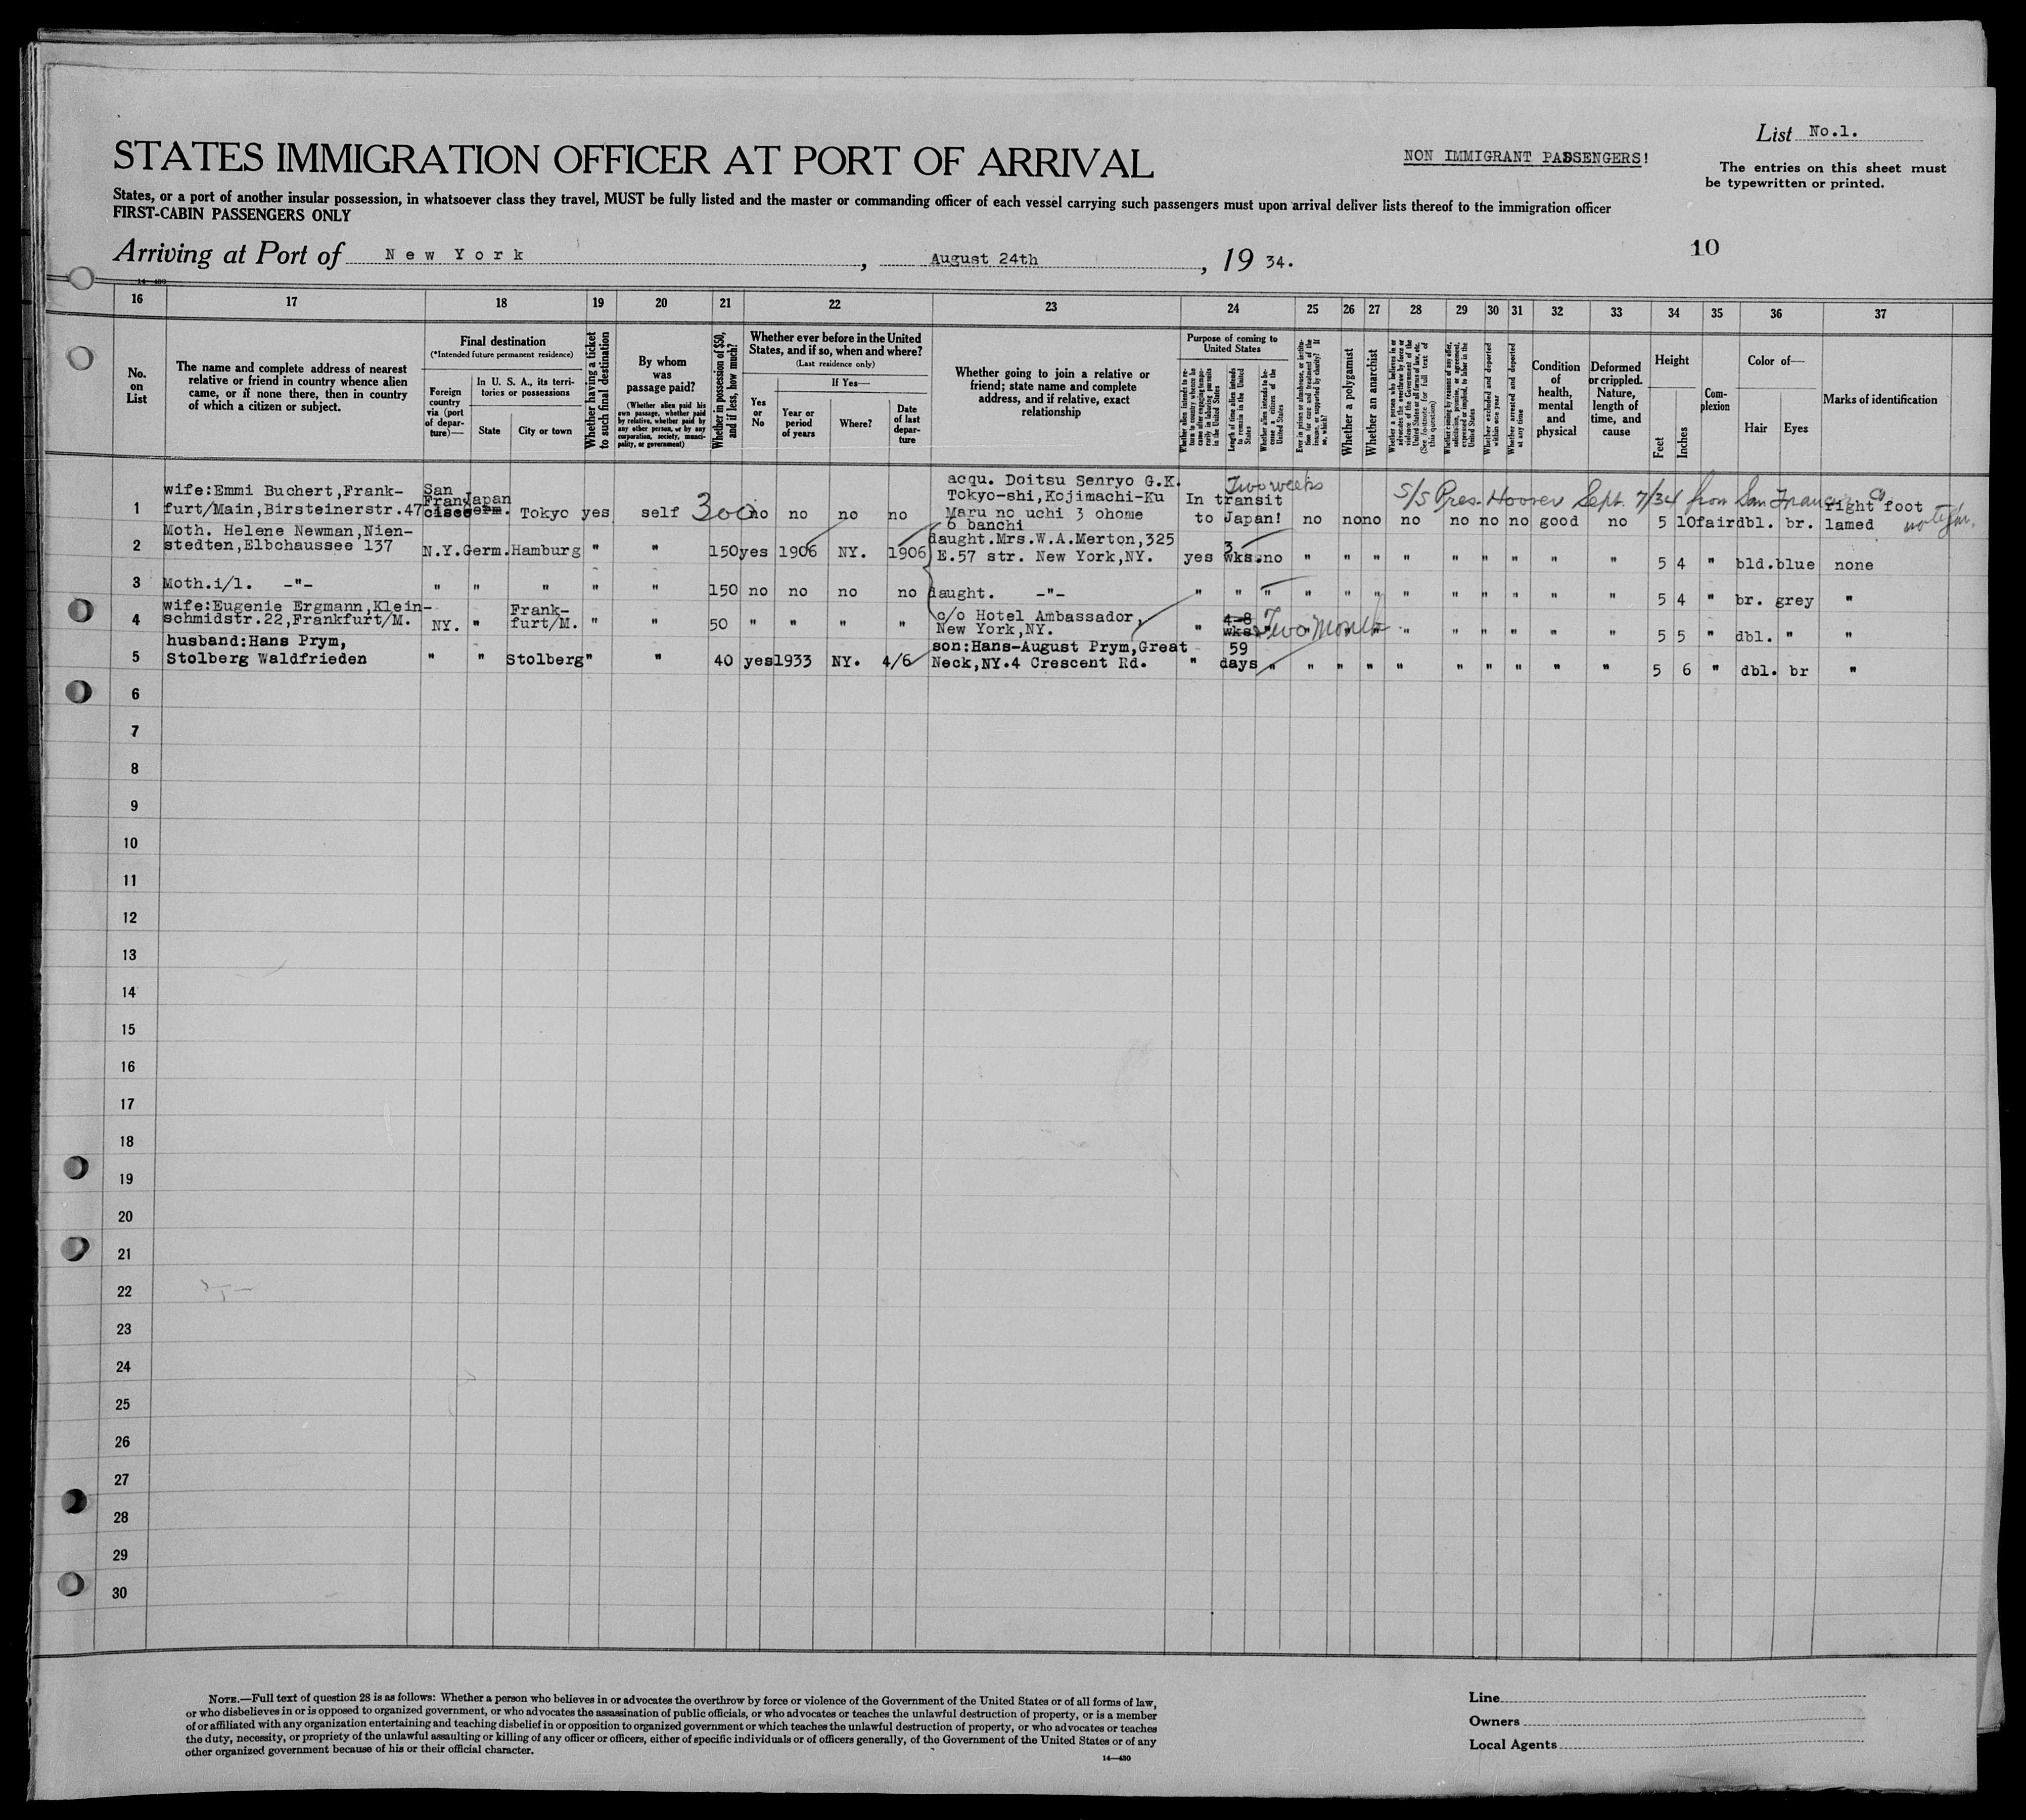 List No.1.
STATES IMMIGRATION OFFICER AT PORT OF ARRIVAL
NON IMMIGRANT PASSENGERS!
The entries on this sheet must
be typewritten or printed.
States, or a port of another insular possession, in whatsoever class they travel, MUST be fully listed and the master or commanding officer of each vessel carrying such passengers must upon arrival deliver lists thereof to the immigration officer
FIRST-CABIN PASSENGERS ONLY
Arriving at Port of New York, August 24th, 19 34.
10
14-480
16 17 18 19 20 21 22 23 24 25 26 27 28 29 30 31 32 33 34 35 36 37
No. on List
The name and complete address of nearest relative or friend in country whence alien came, or if none there, then in country of which a citizen or subject.
Final destination
(*Intended future permanent residence)
Foreign country via (port of departure)—
In U. S. A., its territories or possessions
State
City or town
Whether having a ticket to such final destination
By whom was passage paid?
(Whether alien paid his own passage, whether paid by relative, whether paid by any other person, or by any corporation, society, municipality, or government)
Whether in possession of $50, and if less, how much?
Whether ever before in the United States, and if so, when and where?
(Last residence only)
Yes or No
If Yes—
Year or period of years
Where?
Date of last departure
Whether going to join a relative or friend; state name and complete address, and if relative, exact relationship
Purpose of coming to United States
Whether alien intends to return to country whence he came after engaging temporarily in laboring pursuits in the United States
Length of time alien intends to remain in the United States
Whether alien intends to become a citizen of the United States
Ever in prison or almshouse, or institution for care and treatment of the insane, or supported by charity? If so, which?
Whether a polygamist
Whether an anarchist
Whether a person who believes in or advocates the overthrow by force or violence of the Government of the United States or all forms of law, etc. (See footnote for full text of this question)
Whether coming by reason of any offer, solicitation, promise, or agreement, expressed or implied, to labor in the United States
Whether excluded and deported within one year
Whether arrested and deported at any time
Condition of health, mental and physical
Deformed or crippled. Nature, length of time, and cause
Height
Feet
Inches
Complexion
Color of—
Hair
Eyes
Marks of identification
1 wife:Emmi Buchert,Frank-
furt/Main,Birsteinerstr.47 San Francisco Japan Germ. Tokyo yes self 300 no no no no
acqu. Doitsu Senryo G.K.
Tokyo-shi,Kojimachi-Ku
Maru no uchi 3 ohome
6 banchi
Two weeks
In transit
to Japan! no no no no no no no good no 5 10 fair dbl. br. right foot
lamed
S/S Pres. Hoover Sept. 7/34 from San Franc
2 Moth. Helene Newman,Nien-
stedten,Elbchaussee 137 N.Y. Germ. Hamburg " " 150 yes 1906 NY. 1906
daught.Mrs.W.A.Merton,325
E.57 str. New York,NY. yes 3 wks. no " " " " " " " " " 5 4 " bld. blue none
3 Moth.i/l. -"- " " " " " 150 no no no no daught. -"- " " " " " " " " " " " " 5 4 " br. grey "
4 wife:Eugenie Ergmann,Klein-
schmidstr.22,Frankfurt/M. NY. " Frank-
furt/M. " " 50 " " " " c/o Hotel Ambassador,
New York,NY. " 4-8 wks. " Two Months " " " " " " " " 5 5 " dbl. " "
5 husband:Hans Prym,
Stolberg Waldfrieden " " Stolberg " " 40 yes 1933 NY. 4/6
son:Hans-August Prym,Great
Neck,NY.4 Crescent Rd. " 59 days " " " " " " " " " " 5 6 " dbl. br "
6
7
8
9
10
11
12
13
14
15
16
17
18
19
20
21
22
23
24
25
26
27
28
29
30
NOTE.—Full text of question 28 is as follows: Whether a person who believes in or advocates the overthrow by force or violence of the Government of the United States or of all forms of law,
or who disbelieves in or is opposed to organized government, or who advocates the assassination of public officials, or who advocates or teaches the unlawful destruction of property, or is a member
of or affiliated with any organization entertaining and teaching disbelief in or opposition to organized government or which teaches the unlawful destruction of property, or who advocates or teaches
the duty, necessity, or propriety of the unlawful assaulting or killing of any officer or officers, either of specific individuals or of officers generally, of the Government of the United States or of any
other organized government because of his or their official character.
14—480
Line
Owners
Local Agents